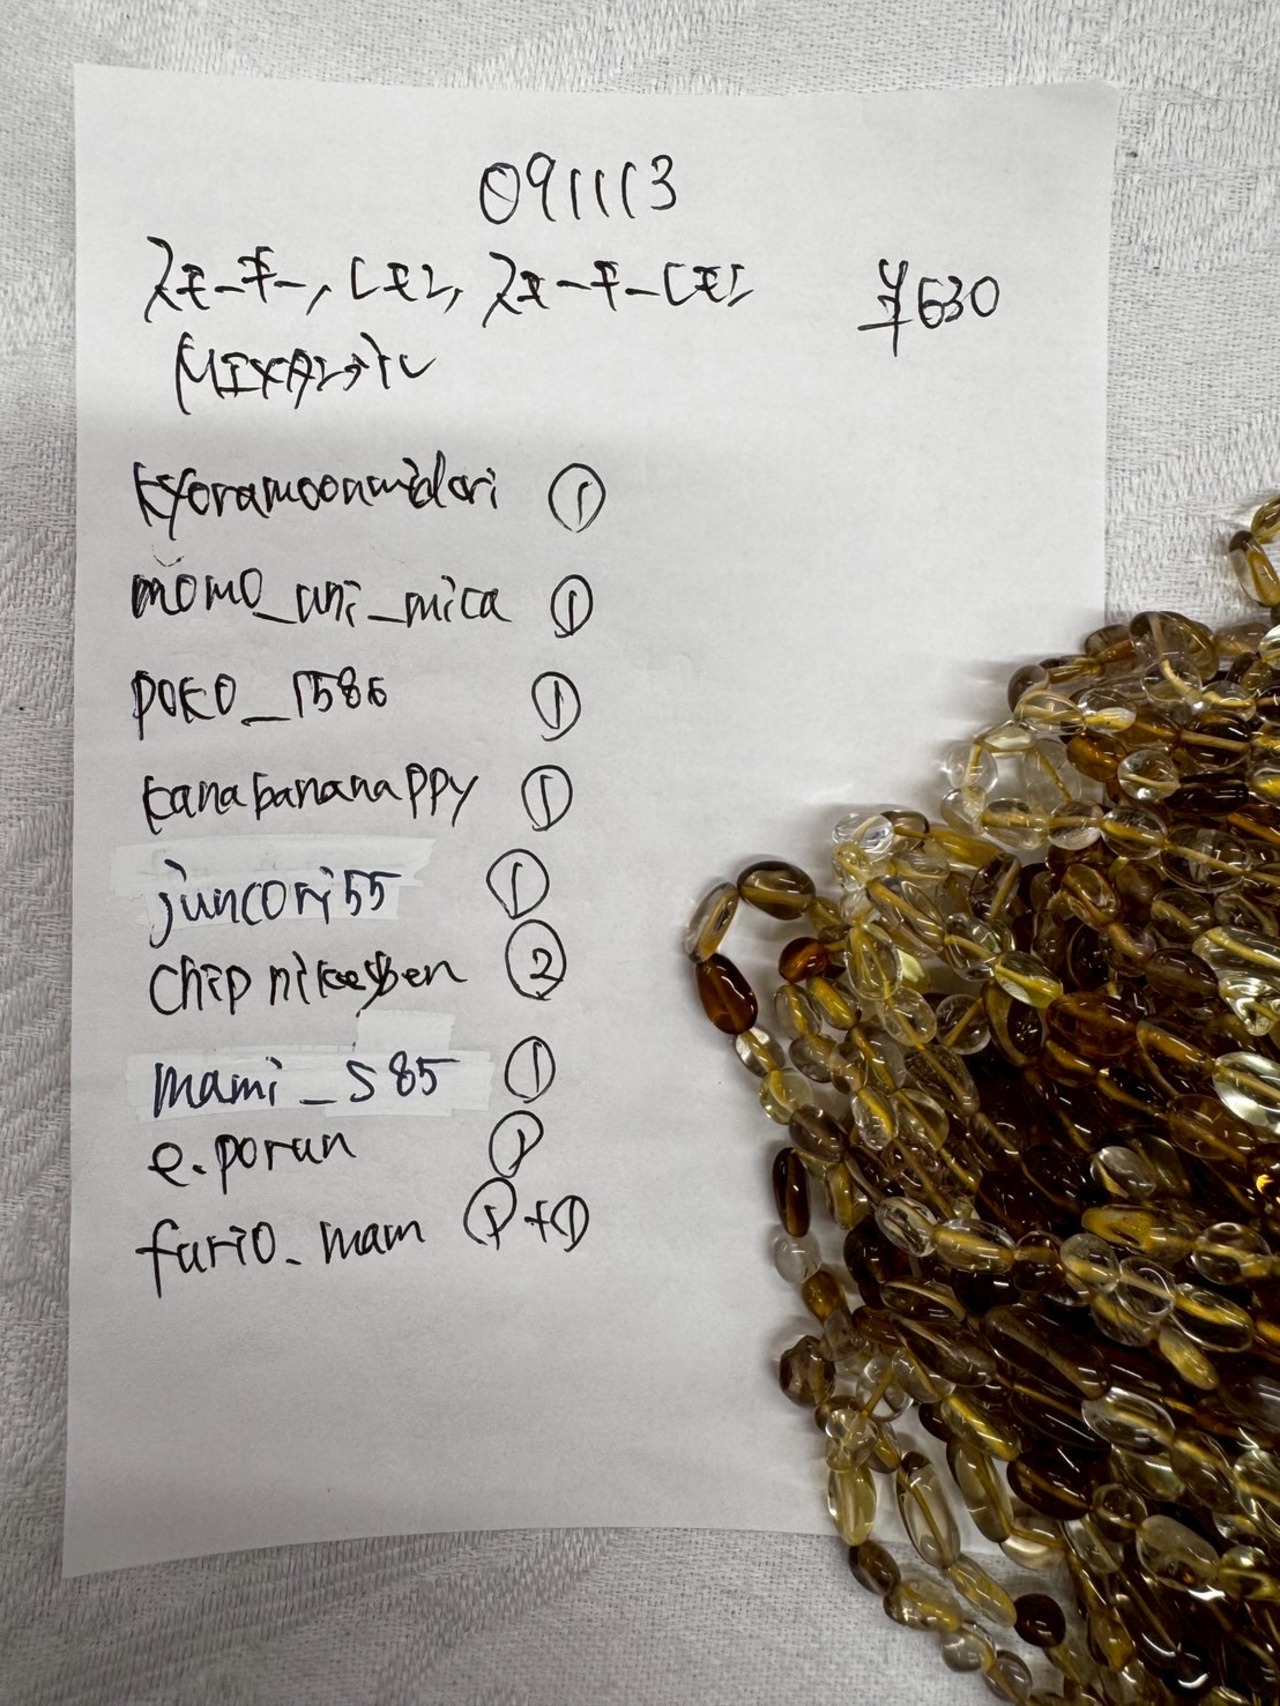 091113
スモーキー, レモン, スモーキーレモン ¥630
MIXタンブル
kyoramoonmidori ①
momo_uni_mica ①
poko_1586 ①
kanabananappy ①
juncori55 ①
chipnikeyben ②
mami_s85 ①
e.porun ①
furio_mam ①+①